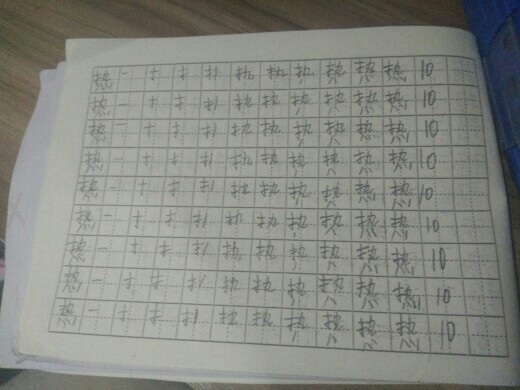 热 一 十 扌 扌 执 执 热 热 热 热 10
热 一 十 扌 扌 执 执 热 热 热 热 10
热 一 十 扌 扌 执 执 热 热 热 热 10
热 一 十 扌 扌 执 执 热 热 热 热 10
热 一 十 扌 扌 执 执 热 热 热 热 10
热 一 十 扌 扌 执 执 热 热 热 热 10
热 一 十 扌 扌 执 执 热 热 热 热 10
热 一 十 扌 扌 执 执 热 热 热 热 10
热 一 十 扌 扌 执 执 热 热 热 热 10